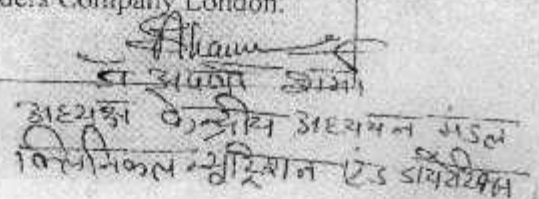 ders Company London.
डॉ अपर्णा शर्मा
अध्यक्ष केन्द्रीय अध्ययन मंडल
क्लिनिकल न्यूट्रिशन एंड डायटेटिक्स